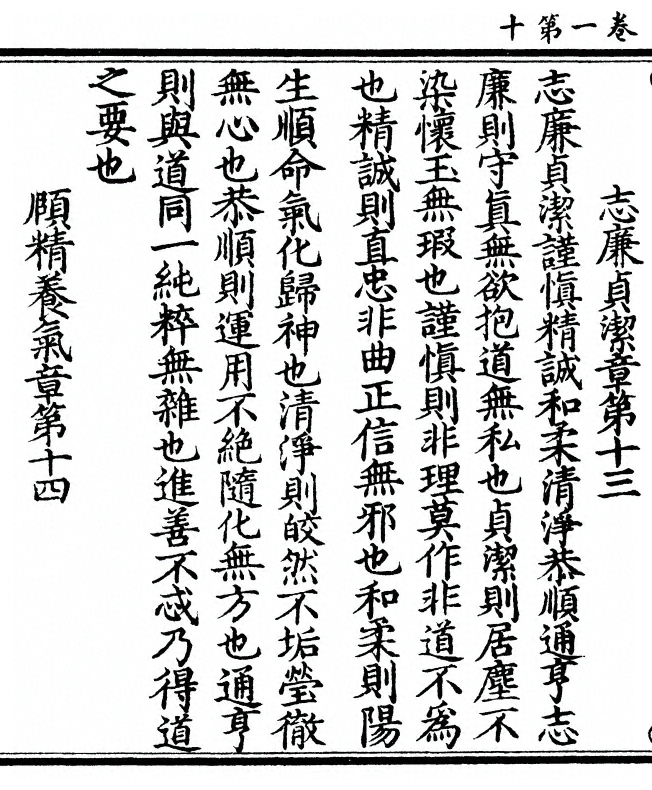 卷一第十
志廉貞潔章第十三
志廉貞潔謹慎精誠和柔清淨恭順通亨志
廉則守眞無欲抱道無私也貞潔則居塵不
染懷玉無瑕也謹慎則非理莫作非道不爲
也精誠則直忠非曲正信無邪也和柔則陽
生順命氣化歸神也清淨則皎然不垢瑩徹
無心也恭順則運用不絕隨化無方也通亨
則與道同一純粹無雜也進善不忒乃得道
之要也
頤精養氣章第十四